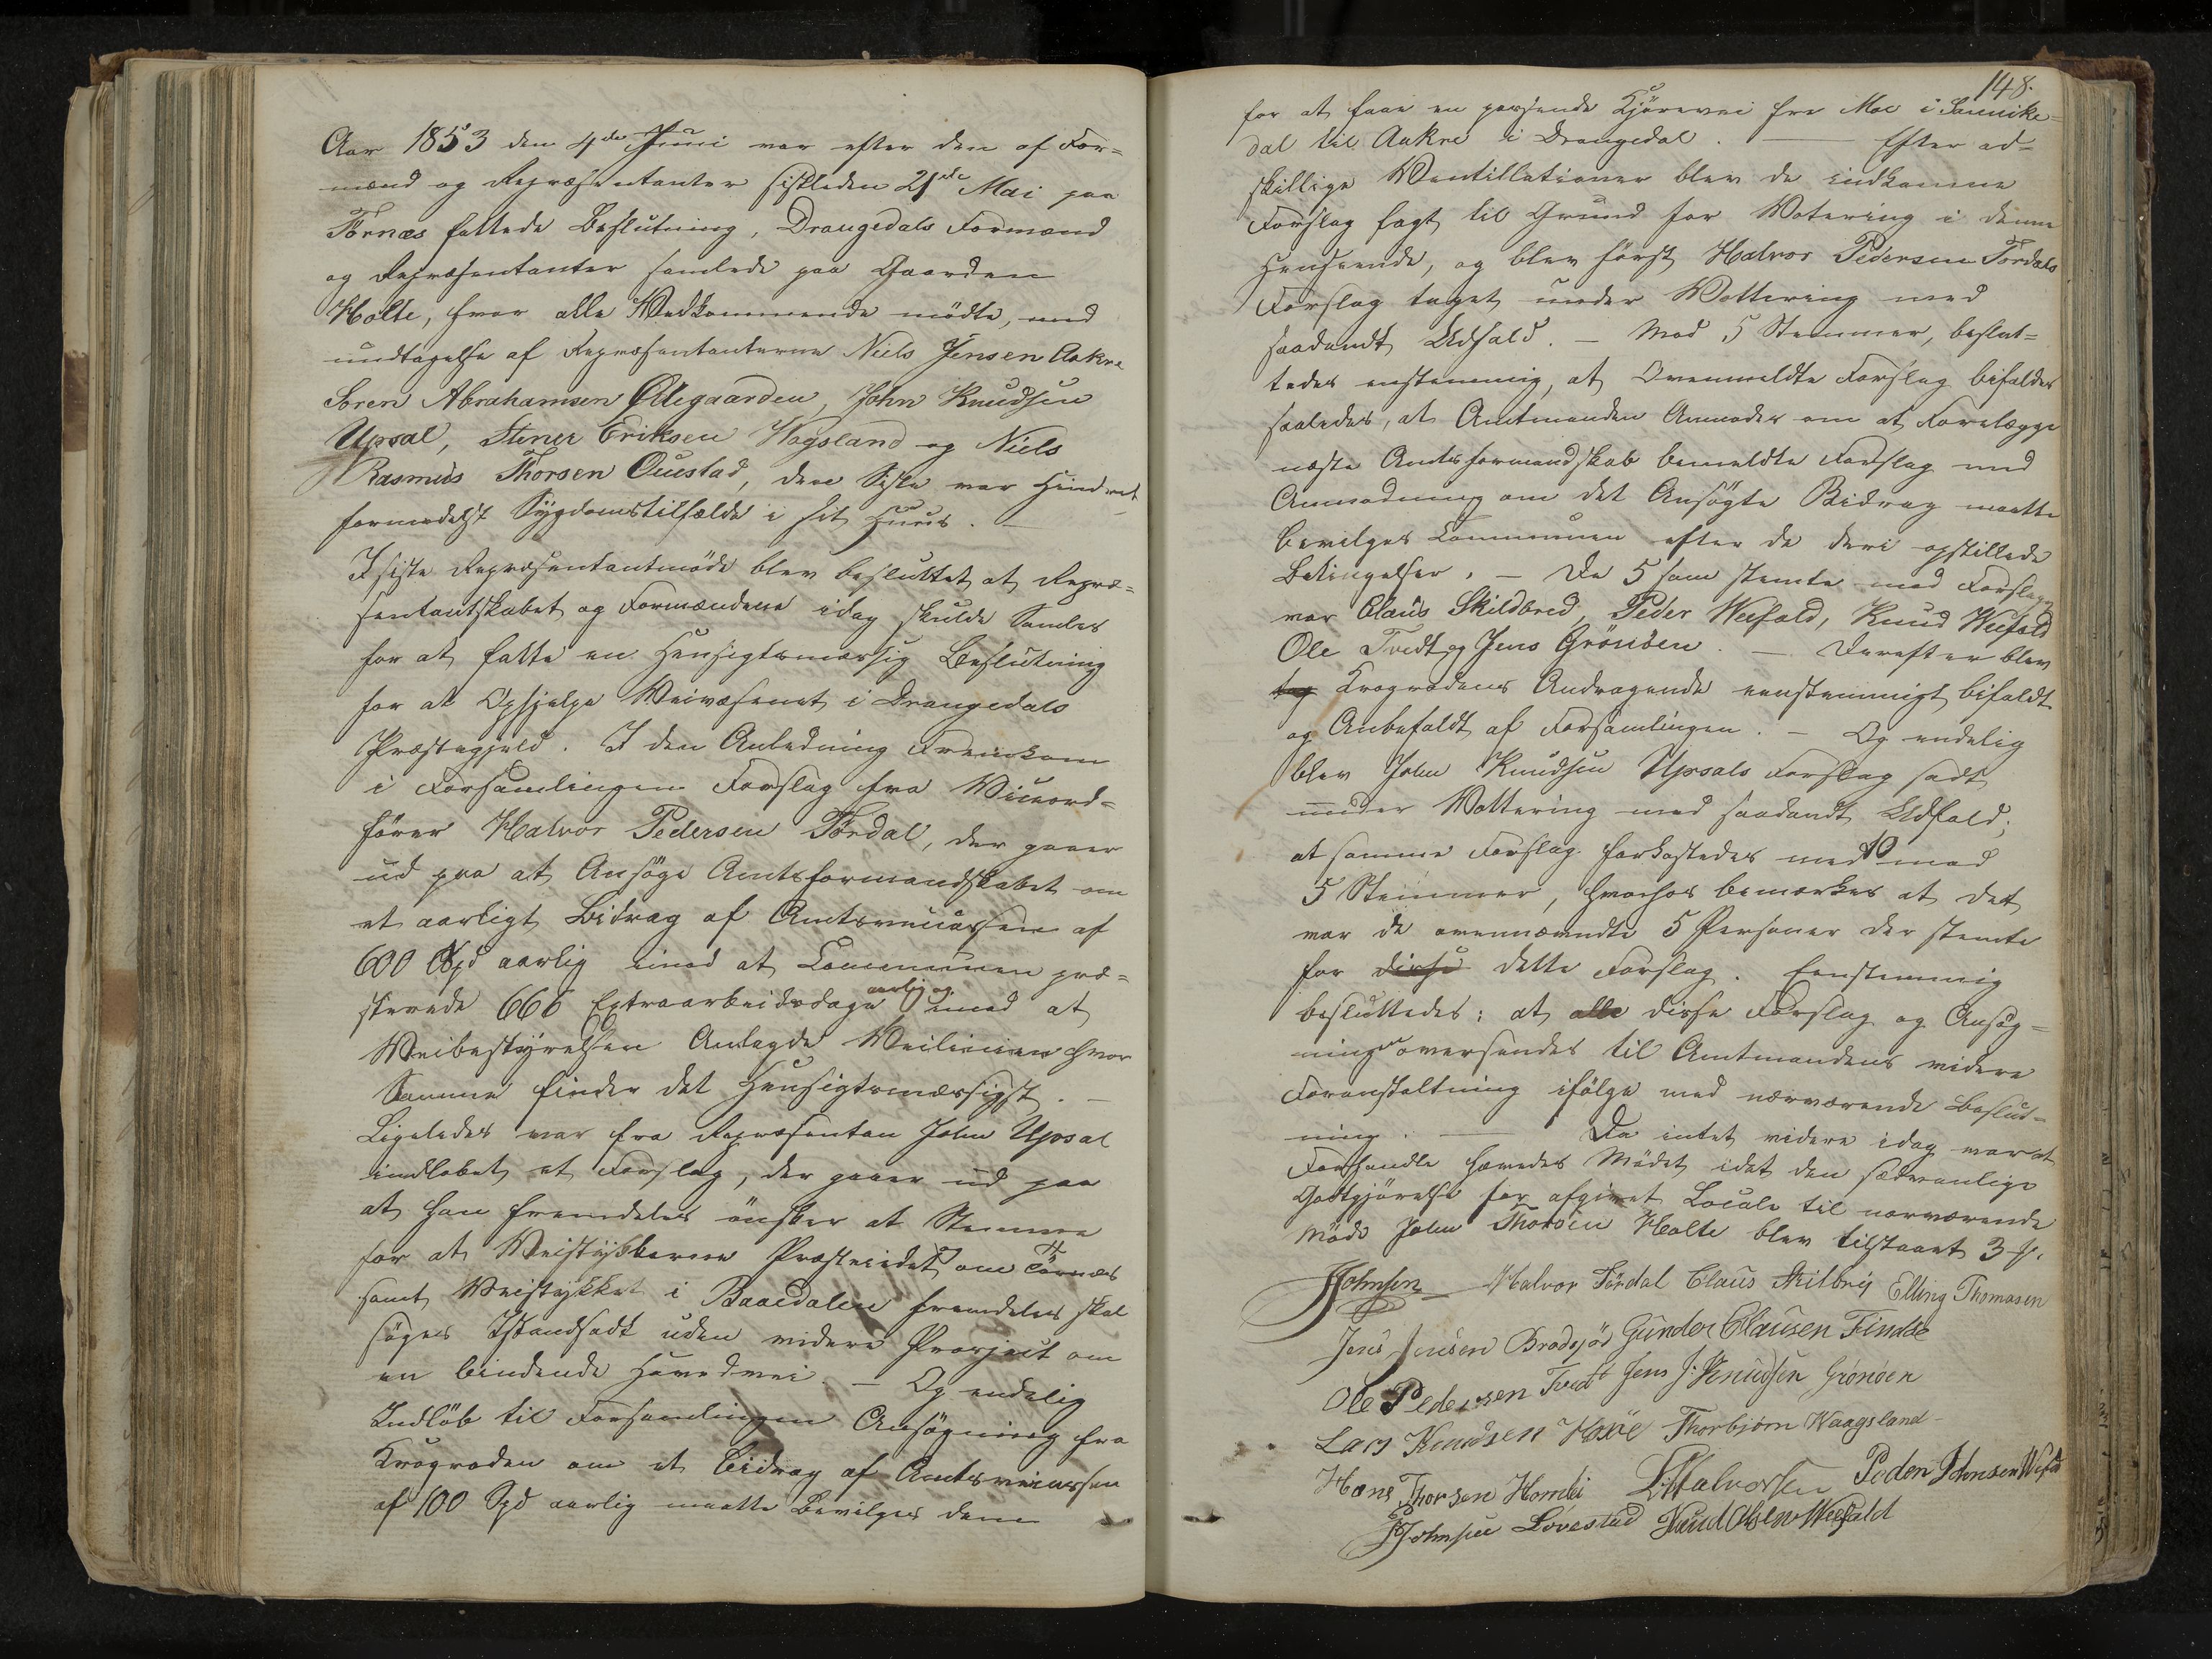 Aar 1853 den 4de Juni var efter den af For=
mænd og Repræsentanter sistleden 21de Mai paa
Törnæs fattede Beslutning, Drangedals Formænd
og Repræsentanter samlede paa Gaarden
Holte, hvor alle Vedkommende mödte, med
undtagelse af Repræsentanterne Niels Jensen Aakre
Sören Abrahamsen Ödegaarden, John Knudsen
Upsal, Stener Eriksen Wagsland og Niels
Rasmus Thorsen Ouestad, den Siste var Hindret
formedelst Sygdomstilfælde i sit Huus. —
I siste Repræsentantmöde blev besluttet at Repræ=
sentantskabet og Formændene idag skulde Samles
for at fatte en Hensigtsmæssig Beslutning
for at Ophjelpe Veivæsenet i Drangedals
Præstegjeld. I den Anledning Fremkom
i Forsamlingen Forslag fra Viceord=
förer Halvor Pedersen Tördal, der gaaer
ud paa at Ansöge Amtsformandskabet om
et aarligt Bidrag af Amtsveicassen af
600 Spd aarlig imod at Communen præ=
sterede 666 Extraarbeidsdage aarlig og imod at
Veibestyrelsen Anlagde Veilinien hvor
Samme finder det Hensigtsmæssigst. —
Ligeledes var fra Repræsentan John Upsal
indlöbet et Forslag, der gaaer ud paa
at han fremdeles önsker at Stemme
for at Veistykkerne Præsteeidet om Törnæs
samt Veistykket i Baaedalen fremdeles skal
söges Istandsadt uden videre Prosject om
en bindende Hovedvei. — Og endelig
Indlöb til Forsamlingen Ansögning fra
Krogroden om et Bidrag af Amtsveicassen
af 100 Spd aarlig maatte Bevilges dem
148.
for at faae en passende Kjörevei fra Moe i Sannike=
dal til Aakre i Drangedal. — Efter ad=
skillige Ventillationer blev de indkomne
Forslag lagt til Grund for Votering i denne
Henseende, og blev först Halvor Pedersen Tördals
Forslag taget under Vottering med
saadandt Udfald. — Mod 5 Stemmer, beslut=
tedes enstemmig, at Ovenmeldte Forslag bifaldes
saaledes, at Amtmanden Anmodes om at Forelægge
næste Amtsformandskab bemeldte Forslag med
Anmodning om det Ansögte Bidrag maatte
bevilges Communen efter de deri opstillede
Betingelser. — De 5 som stemte mod Forslaget
var Claus Skildbred, Peder Weefald, Knud Weefald
Ole Tvedt og Jens Grönsen. — Derefter blev
tog Krogrodens Andragende eenstemmigt bifaldt
og Anbefaldt af Forsamlingen. — Og endelig
blev John Knudsen Upsals Forslag sadt
under Vottering med saadandt Udfald;
at samme Forslag forkastedes med 10 mod
5 Stemmer, hvorhos bemærkes at det
var de ovennævndte 5 Personer der stemte
for disse dette Forslag. Eenstemmig
besluttedes: at alle disse Forslag og Ansög=
ningen oversendes til Amtmandens videre
Foranstaltning ifölge med nærværende Beslut=
ning. — Da intet videre idag var at
Forhandle hævedes Mödet, idet den sædvanlige
Godtgjörelse for afgivet Locale til nærværende
Möde John Thorsen Holte blev tilstaaet 3 f.
JJohnsen Halvor Tördal Claus Skilbrij Elling Thomasen
Jens Jensen Brødsjöe Gunder Clausen Findal
Ole Pedersen Tvedt Jens J: Knudsen Grönöen
Lars Knudsen Thorbjörn Waagsland
Hans Thorsen LHalvorsen Peder Johnsen Wefald
JJohnsen Lovestad Knud Olsen Weefald